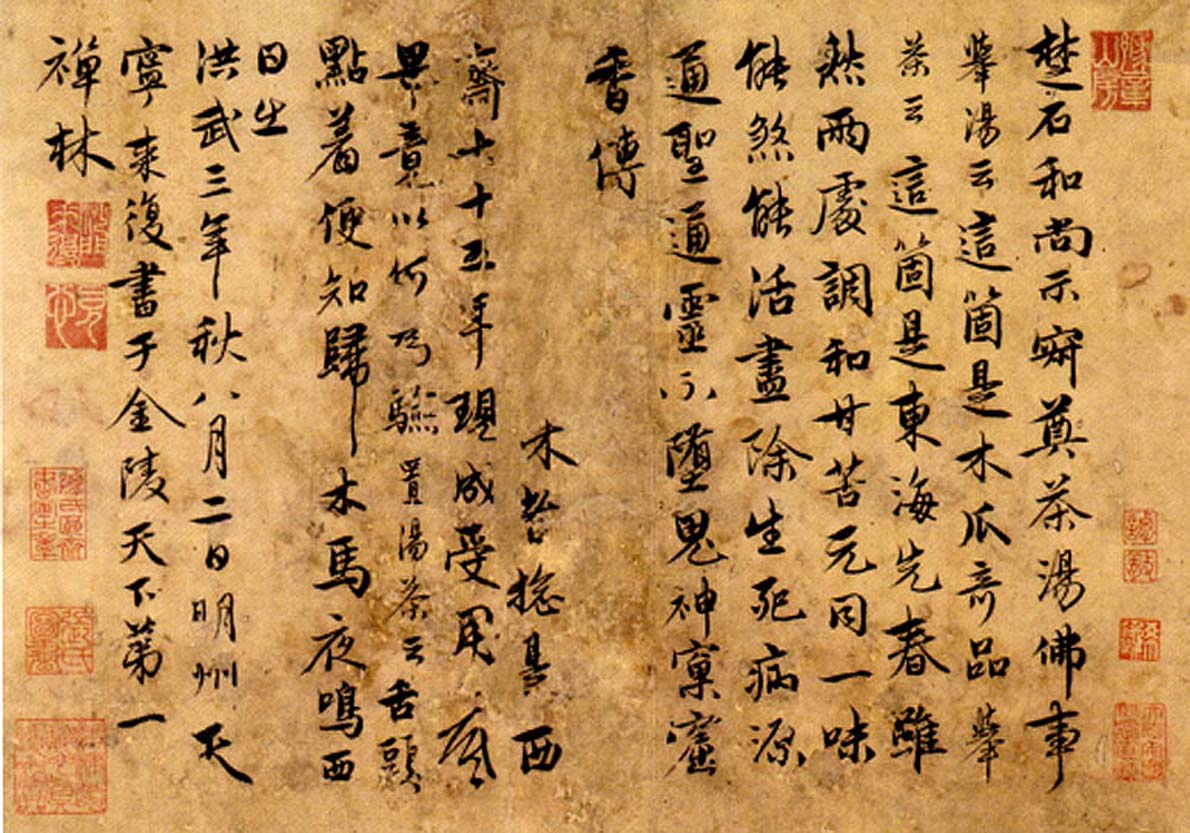 楚石和尚示寂奠茶湯佛事
舉湯云這箇是木瓜奇品舉
茶云這箇是東海先春雖
然兩處調和甘苦元同一味
能煞能活盡除生死病源
通聖通靈不墮鬼神窠窟
香傳
木哲捴是西
齋七十五年現成受用風
景竟以何為驗置湯茶云舌頭
點着便知歸木馬夜鳴西
日出
洪武三年秋八月二日明州天
寧來復書于金陵天下第一
禪林